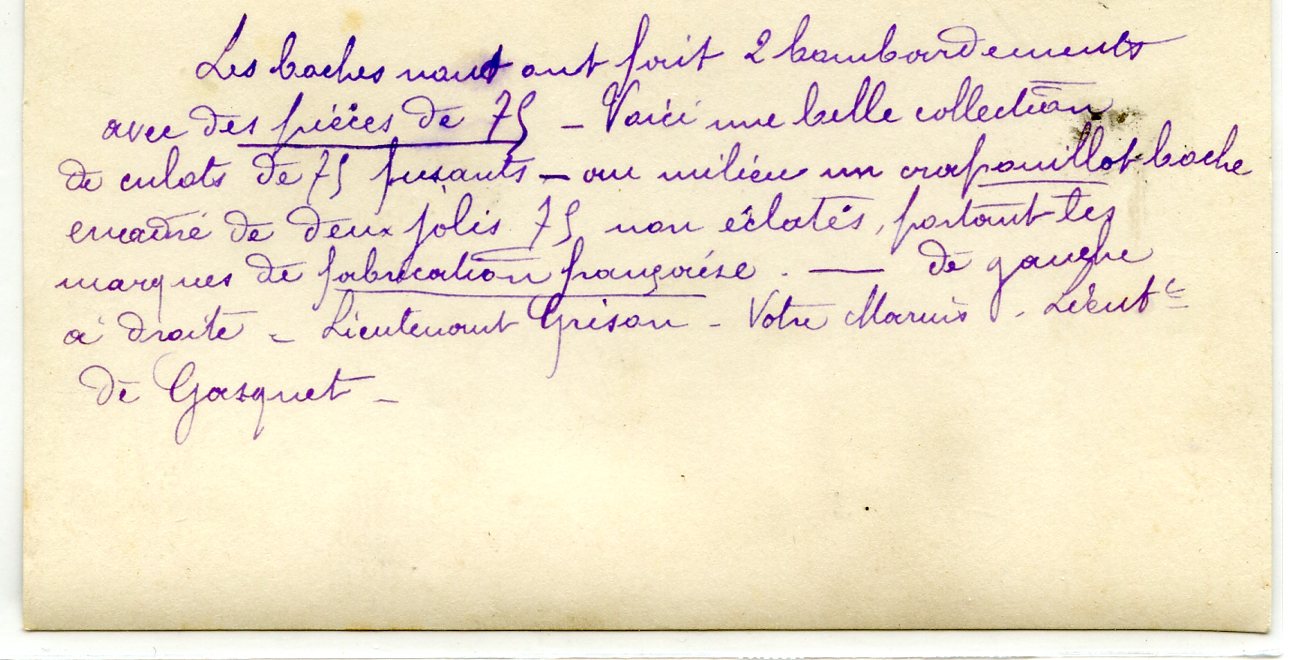 Les boches nous ont fait 2 bombardements
avec des pièces de 75 – Voici une belle collection
de culots de 75 fusants – au milieu un crapouillot boche
encadré de deux jolis 75 non éclatés, portant les
marques de fabrication française. — de gauche
à droite – Lieutenant Grison – Votre Marius. Lieut^t
de Gasquet –